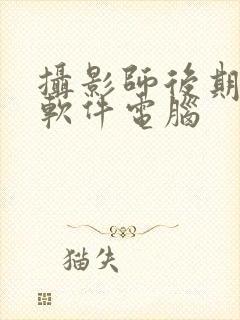 攝影師後期
軟件電腦
猫失